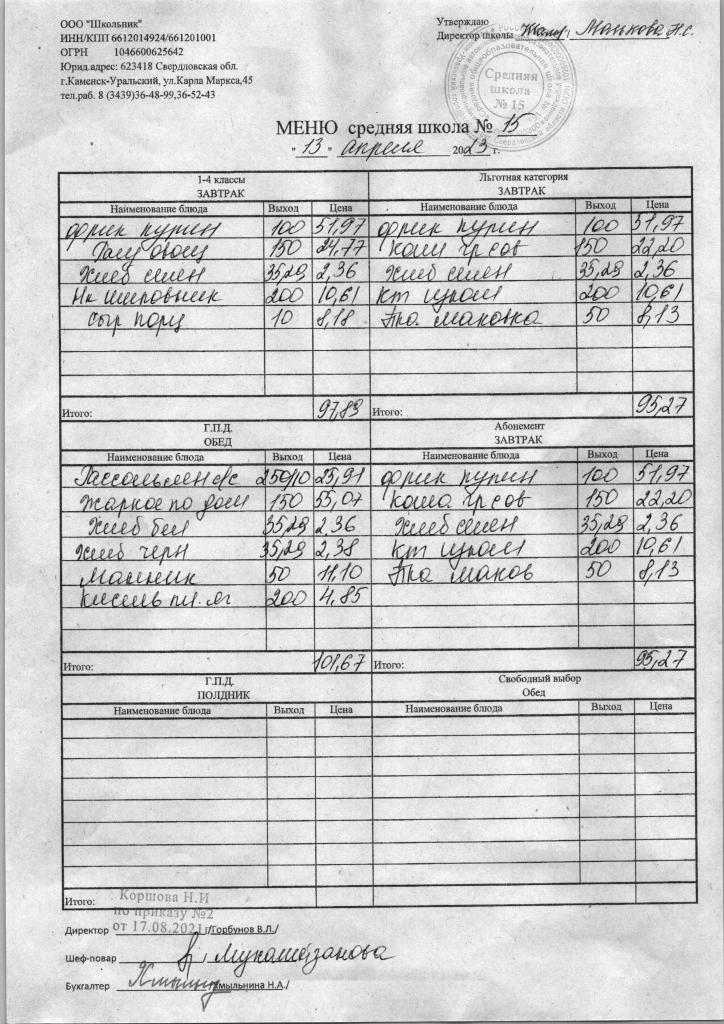 ООО "Школьник"
ИНН/КПП 6612014924/661201001
ОГРН 1046600625642
Юрид.адрес: 623418 Свердловская обл.
г.Каменск-Уральский, ул.Карла Маркса,45
тел.раб. 8 (3439)36-48-99,36-52-43
Утверждаю
Директор школы
Средняя
школа
№ 15
МЕНЮ средняя школа № 15
" 13 " апреля 2023 г.
1-4 классы
ЗАВТРАК
Льготная категория
ЗАВТРАК
Наименование блюда Выход Цена Наименование блюда Выход Цена
фрик курин 100 51,97 фрик курин 100 51,97
150 24,77 каши гр сов 150 22,20
Хлеб смен 35,29 2,36 Хлеб смен 35,29 2,36
Нк шиповник 200 10,61 Кт изюм 200 10,61
Сыр порц 10 8,18 маковка 50 8,13
Итого: 97,89 Итого: 95,27
Г.П.Д.
ОБЕД
Абонемент
ЗАВТРАК
Наименование блюда Выход Цена Наименование блюда Выход Цена
250/10 25,91 фрик курин 100 51,97
Жаркое по дом 150 55,07 Каша гр сов 150 22,20
Хлеб бел 35,29 2,36 Хлеб смен 35,29 2,36
Хлеб черн 35,29 2,38 Кт изюм 200 10,61
Манник 50 11,10 маков 50 8,13
Кисель пл. яг 200 4,85
Итого: 101,67 Итого: 95,27
Г.П.Д.
ПОЛДНИК
Свободный выбор
Обед
Наименование блюда Выход Цена Наименование блюда Выход Цена
Итого:
Коршова Н.И
по приказу №2
от 17.08.2021 г
Директор /Горбунов В.Л./
Шеф-повар
Бухгалтер /Хмыльнина Н.А./